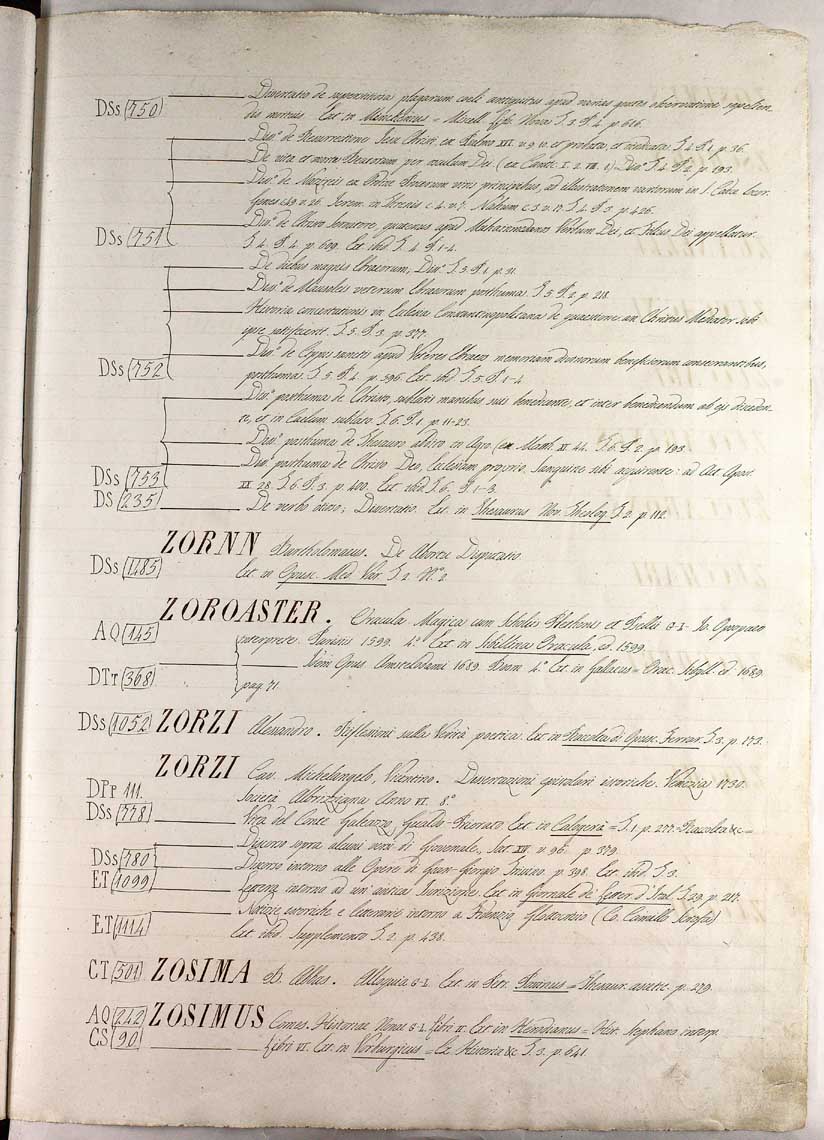 DSs 750 Dissertatio de superstitiosa plagarum coeli antiquitus apud varias gentes observatione in sepelien-
dis mortuis. Ext. in Menckenius = Miscell. Lips. Novae T. 3. P. 4. p. 616.
Diss.o de Resurrectione Jesu Christi, ex Psalmo XVI. v. 9. 10. et probata, et vindicata. T. 4. P. 1. p. 36.
De vita et morte Beatorum per osculum Dei. (ex Cantic. I. 2. VIII. 1) Diss. T. 4. P. 2. p. 193.
Diss.o de ex Ordine viris principibus, ad illustrationem variorum in S. Codice
c. 49. v. 26. Jerem. in Threnis c. 4. v. 7. Nahum c. 3. v. 17. T. 4. P. 3. p. 426.
DSs 751 Diss.o de Christo Servatore, quatenus apud Mahomedanos Verbum Dei, et Filius Dei appellatur.
T. 4. P. 4. p. 609. Ext. ibid. T. 4. P. 1-4.
De diebus magnis Ebraeorum, Diss.o T. 5. P. 1. p. 31.
Diss.o de Mausoleis veterum Ebraeorum posthuma. T. 5. P. 2. p. 218.
Historia concertationis in Ecclesia Constantinopolitana de quaestione: an Christus Mediator sibi
ipse satisfecerit. T. 5. P. 3. p. 377.
DSs 752 Diss.o de Cippis sanctis apud Veteres Ebraeos memoriam divinorum beneficiorum conservantibus,
posthuma. T. 5. P. 4. p. 596. Ext. ibid. T. 5. P. 1-4
Diss.o posthuma de Christo, sublatis manibus suis benedicente, et inter benedicendum ab iis disceden-
te, et in Caelum sublato T. 6. P. 1. p. 11-23.
Diss.o posthuma de Thesauro abdito in Agro (ex Matth. XIII. 44. T. 6. P. 2. p. 193.
DSs 753 Diss.o posthuma de Christo Deo, Ecclesiam proprio Sanguine sibi acquirente: ad Act. Apos.
XX. 28. T. 6. P. 3. p. 400. Ext. ibid. T. 6. P. 1-3.
DS 235 De verbo otioso; Dissertatio. Ext. in Thesaurus Nov. Theolog. T. 2. p. 112.
ZORNN Bartholomaeus. De Abortu Disputatio.
DSs 1485 Ext. in Opusc. Med. Var. T. 2. N.o 2.
ZOROASTER. Oracula Magica cum Scholiis Plethonis et Pselli G-L. Jo. Opsopaeo
AQ 145 interprete. Parisiis 1599. 4.o Ext. in Sibillina Oracula, ed. 1599.
Idem Opus. Amstelodami 1689. Boom. 4.o Ext. in Gallaeus = Orac. Sibyll. ed. 1689.
DTr 368 pag. 71.
DSs 1052 ZORZI Alessandro. Riflessioni sulla Verità poetica. Ext. in Raccolta di Opusc. Ferrar. T. 3. p. 173.
ZORZI Cav. Michelangelo, Vicentino. Dissertazioni epistolari istoriche. Venezia 1730.
DPp 111. Società Albritziana Anno VI. 8.o
DSs 778 Vita del Conte Galeazzo Gualdo-Priorato. Ext. in Calogerà = T. 1. p. 277. Raccolta &c =
Discorso sopra alcuni versi di Giovenale, Sat. XIV. v. 96. p. 379.
DSs 780 Discorso intorno alle Opere di Gian-Giorgio Trissino. p. 398. Ext. ibid. T. 3.
ET 1099 Lettera intorno ad un'antica Iscrizione. Ext. in Giornale de' Letter. d'Ital. T. 29. p. 217.
Notizie istoriche e letterarie intorno a (Co. Camillo
ET 1114 Ext. ibid. Supplemento T. 2. p. 438.
CT 501 ZOSIMA B. Abbas. Alloquia G-L. Ext. in Petr. Possinus = Thesaur. ascetic. p. 279.
AQ 242 ZOSIMUS Comes. Historiae Novae G-L. Libri II. Ext. in Herodianus = Hen. Stephano interp.
CS 90 Libri VI. Ext. in Vorburgicus = Ex Historia &c T. 3. p. 641.